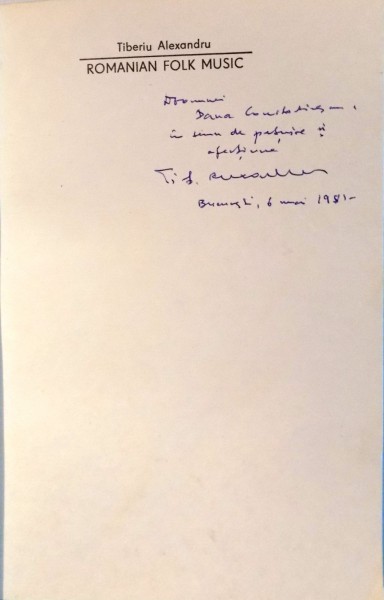 Tiberiu Alexandru
ROMANIAN FOLK MUSIC
Doamnei
Dana Constantinescu,
în semn de prețuire și
afecțiune
Tib. Alexandru
București, 6 mai 1981